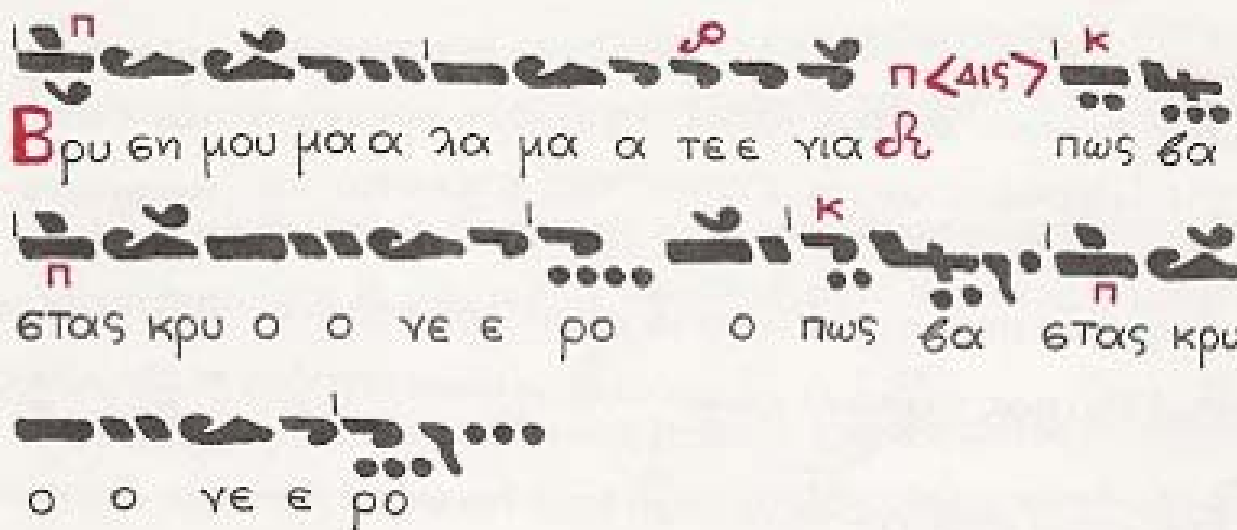 π κ
π<Δις>
Βρυ ση μου μα α α λα μα α τε ε για πως βα
κ
π π
στας κρυ ο ο νε ε ρο ο πως βα στας κρυ
ο ο νε ε ρο